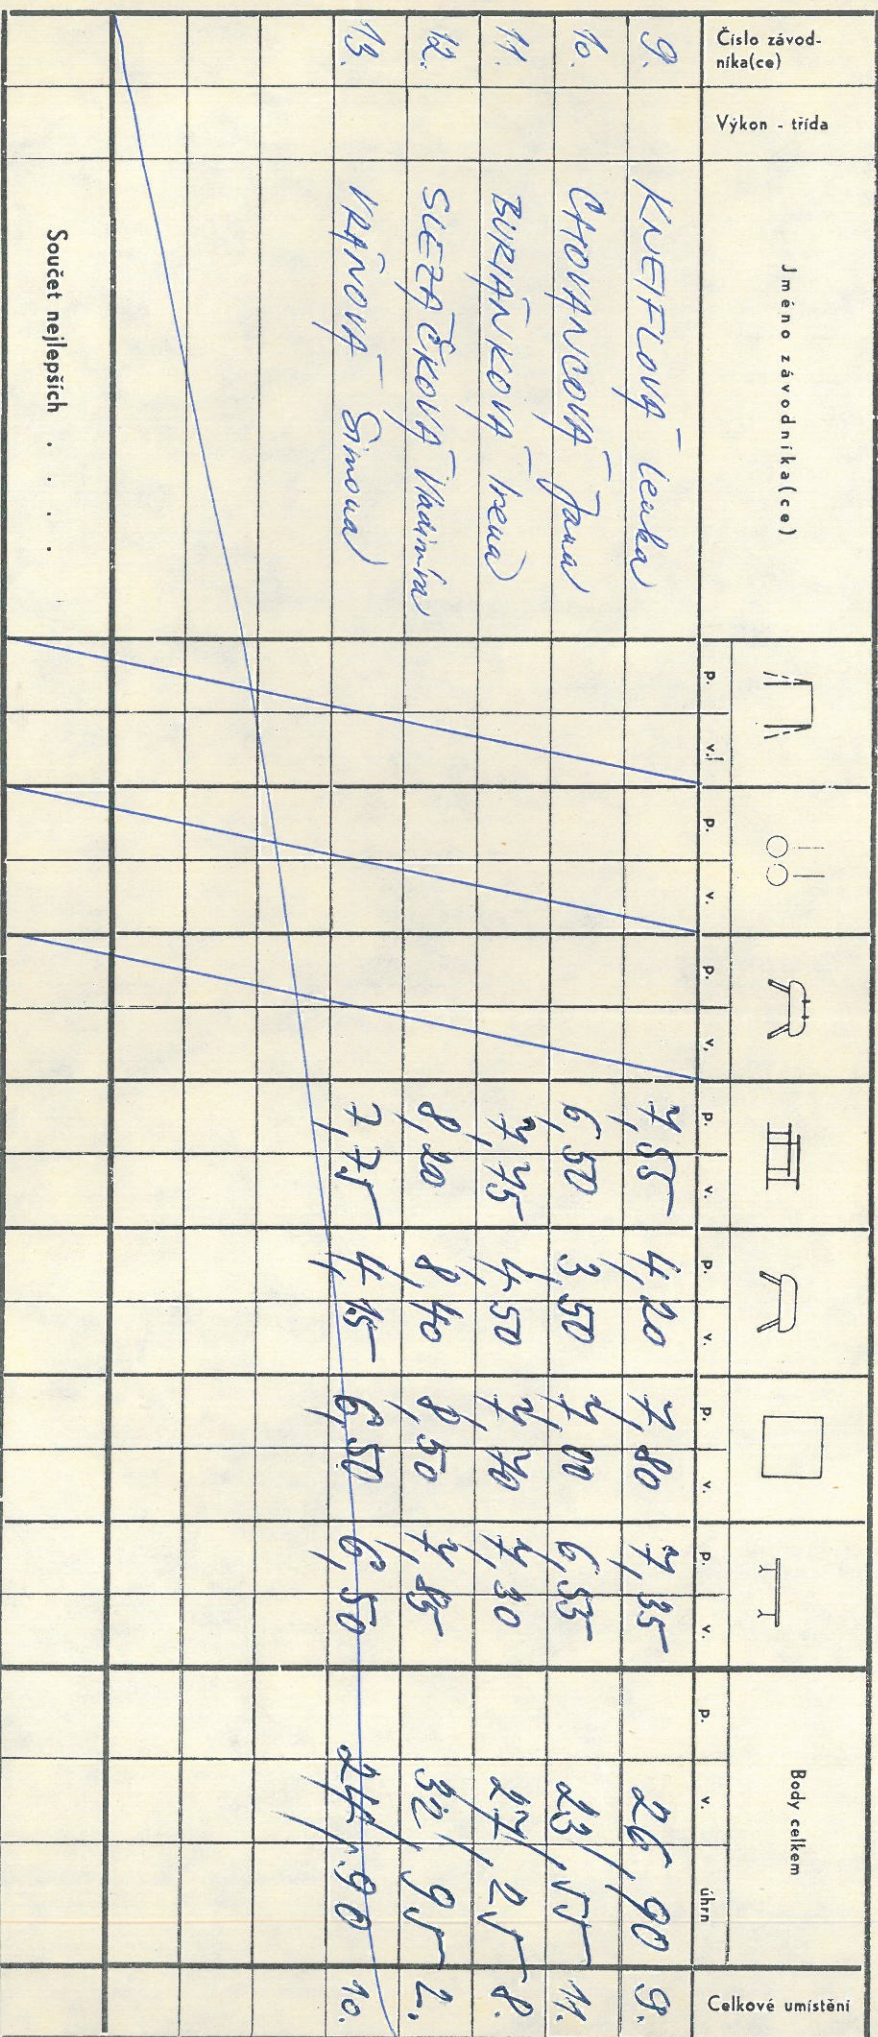 Číslo závod-
níka(ce)
Výkon - třída
Jméno závodníka(ce)
Body celkem
Celkové umístění
p. v. p. v. p. v. p. v. p. v. p. v. p. v. p. v. úhrn
9. KNEIFLOVÁ Lenka 7,55 4,20 7,80 7,35 26,90 9.
10. CHOVANCOVÁ Jana 6,50 3,50 7,00 6,55 23,55 11.
11. BURIÁNKOVÁ Irena 7,75 4,50 7,70 7,30 27,25 8.
12. SLEZÁČKOVÁ Vladimíra 8,20 8,40 8,50 7,85 32,95 2.
13. VRÁŇOVÁ Simona 7,75 4,15 6,50 6,50 24,90 10.
Součet nejlepších . . . .